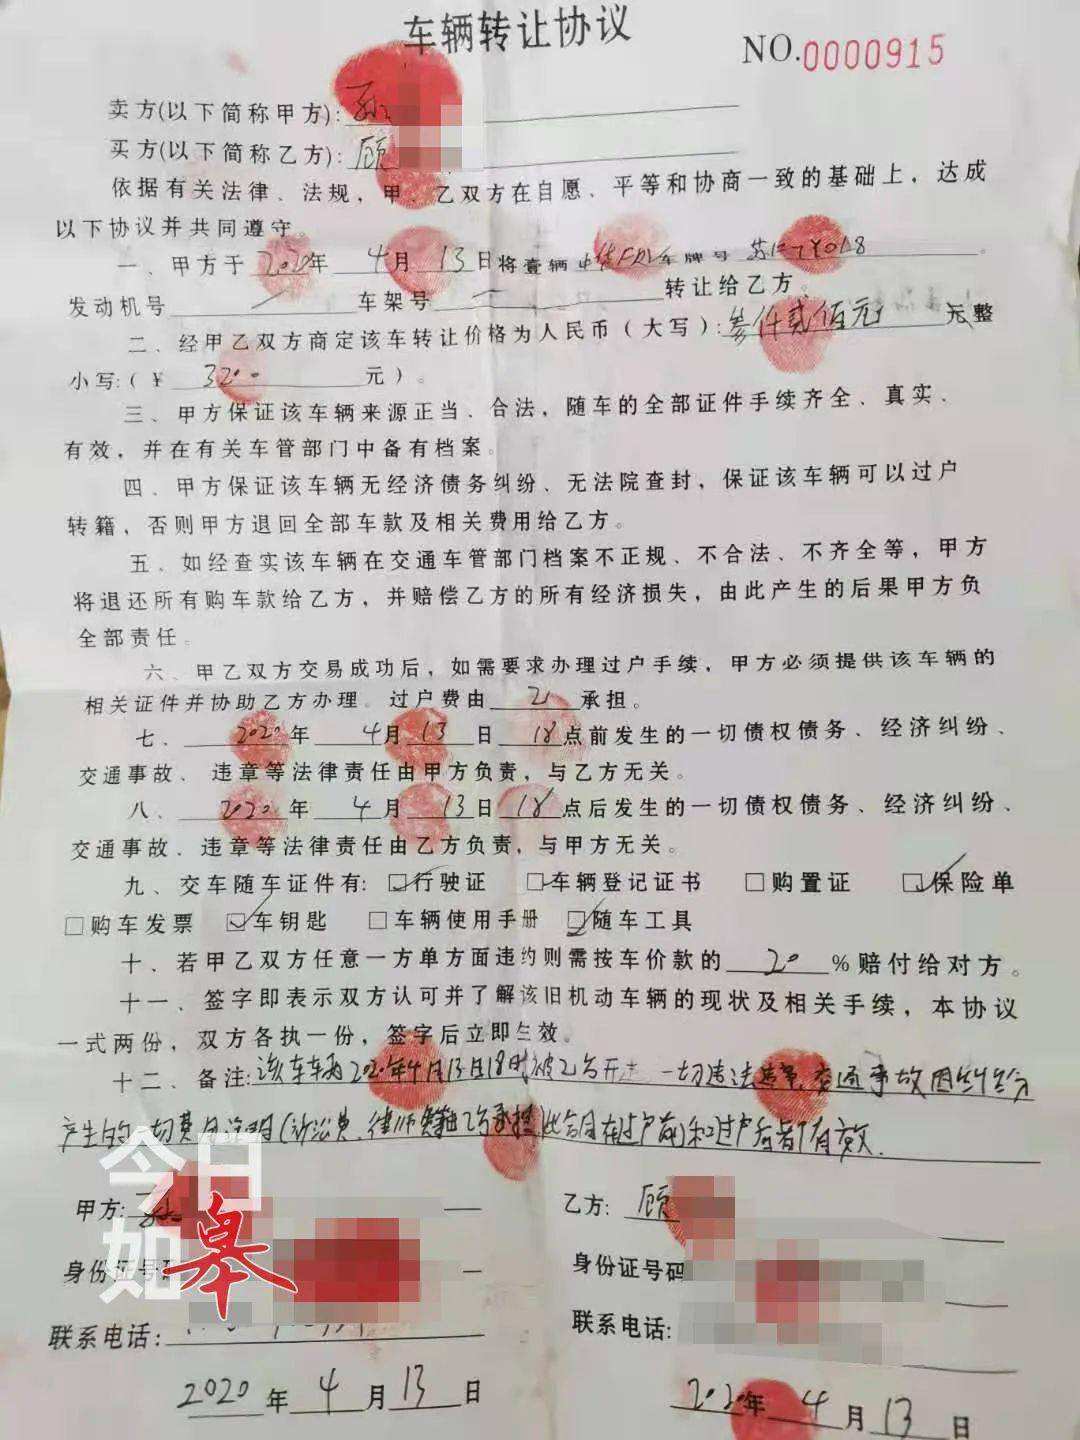 车辆转让协议
NO.0000915
卖方(以下简称甲方):孙
买方(以下简称乙方):顾
依据有关法律、法规，甲、乙双方在自愿、平等和协商一致的基础上，达成
以下协议并共同遵守。
一、甲方于2020年4月13日将壹辆中华FRV车牌号
发动机号 车架号 转让给乙方。
二、经甲乙双方商定该车转让价格为人民币（大写）:叁仟贰佰元 元整
小写:（¥ 3200 元）。
三、甲方保证该车辆来源正当、合法，随车的全部证件手续齐全、真实、
有效，并在有关车管部门中备有档案。
四、甲方保证该车辆无经济债务纠纷、无法院查封，保证该车辆可以过户
转籍，否则甲方退回全部车款及相关费用给乙方。
五、如经查实该车辆在交通车管部门档案不正规、不合法、不齐全等，甲方
将退还所有购车款给乙方，并赔偿乙方的所有经济损失，由此产生的后果甲方负
全部责任。
六、甲乙双方交易成功后，如需要求办理过户手续，甲方必须提供该车辆的
相关证件并协助乙方办理。过户费由 乙 承担。
七、2020年4月13日18点前发生的一切债权债务、经济纠纷、
交通事故、违章等法律责任由甲方负责，与乙方无关。
八、2020年4月13日18点后发生的一切债权债务、经济纠纷、
交通事故、违章等法律责任由乙方负责，与甲方无关。
九、交车随车证件有: ☑行驶证 ☑车辆登记证书 □购置证 ☑保险单
□购车发票 ☑车钥匙 □车辆使用手册 ☑随车工具
十、若甲乙双方任意一方单方面违约则需按车价款的 20 %赔付给对方。
十一、签字即表示双方认可并了解该旧机动车辆的现状及相关手续，本协议
一式两份，双方各执一份，签字后立即生效。
十二、备注:该车车辆2020年4月13日18时被乙方开走 一切违法违章,交通事故因纠纷
产生的一切费用 (诉讼费、律师费 由乙方承担)此合同在过户前和过户后皆有效.
甲方:孙
乙方:顾
身份证号码
身份证号码
联系电话:
联系电话:
2020年4月13日
2020年4月13日
今日
如皋